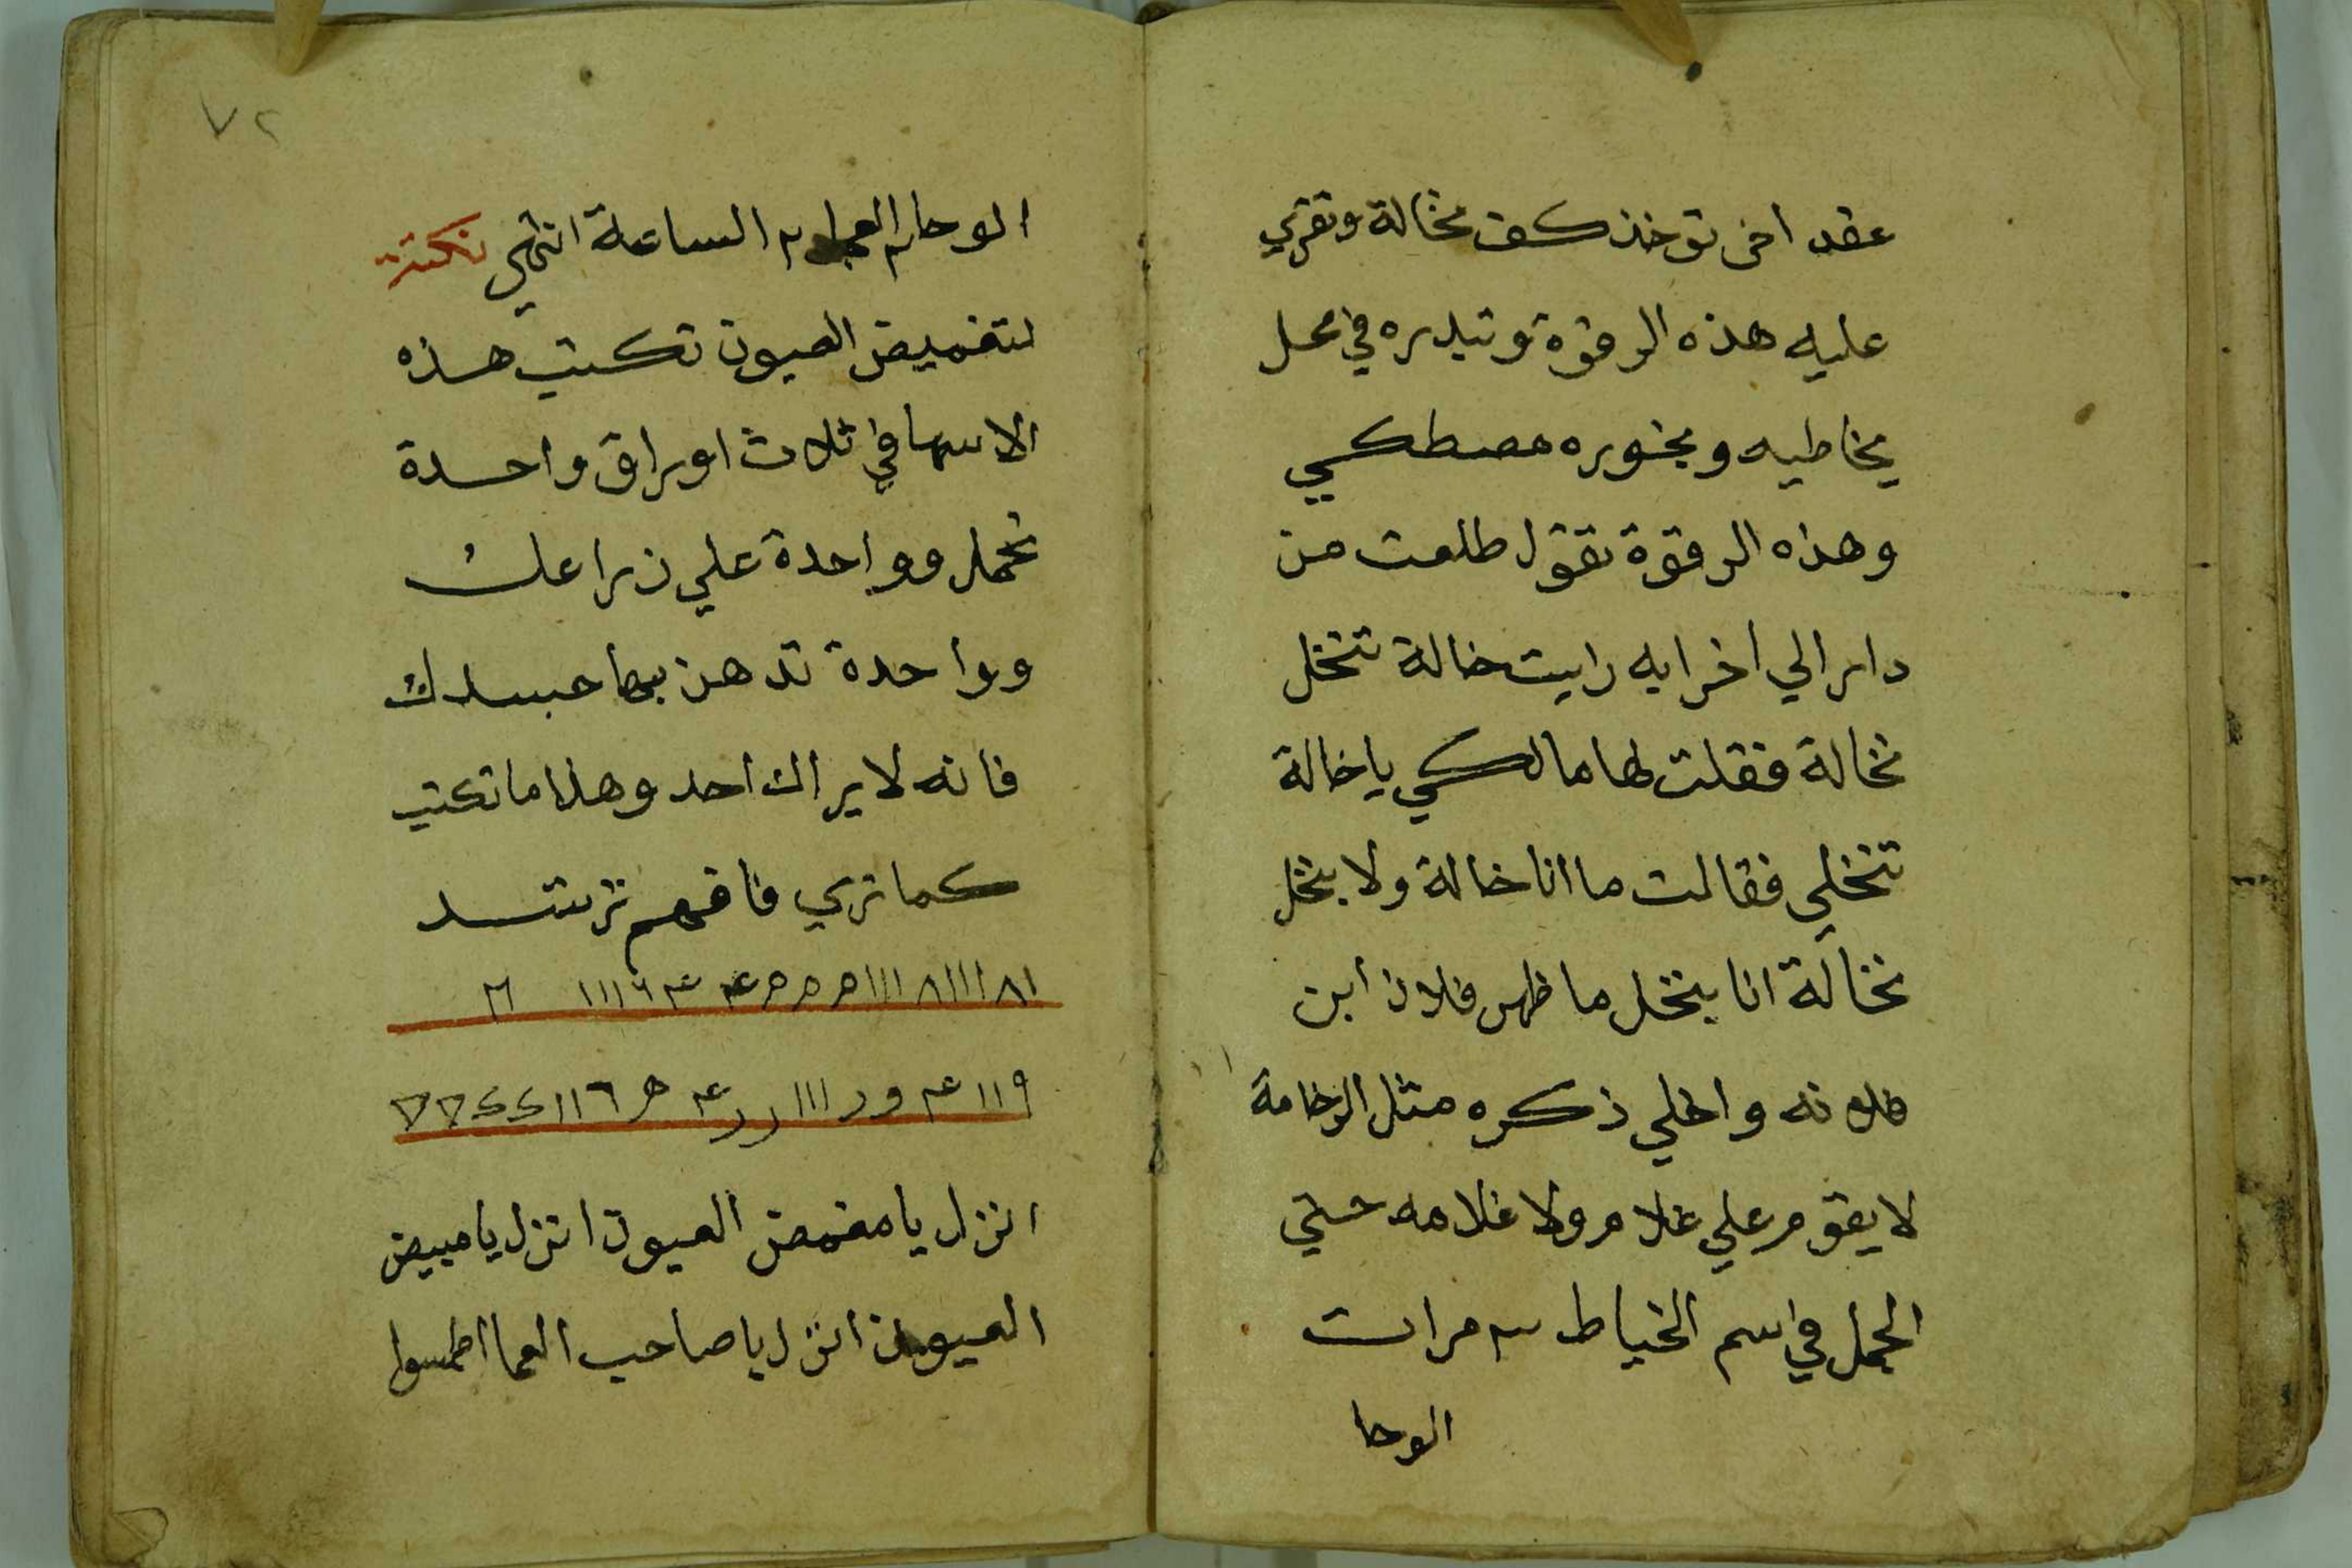 عقد اخر توخذ كف نخالة وتقري
عليه هذه الرقوة وتبدره في محل
يخاطيه وبخوره مصطكي
وهذه الرقوة تقول طلعت من
دار الي اخرايه رايت خالة تنخل
نخالة فقلت لها مالكي يا خالة
تنخلي فقالت ما انا خالة ولا بنخل
نخالة انا بنخل ما ظهر فلان ابن
فلانه واخلي ذكره مثل الرخامة
لا يقوم علي غلام ولا غلامه حتي
الجمل في اسم الخياط ٣ مرات
الوحا
٧٢
الوحا ٢ العجل ٢ الساعة انتهي نكتة
لتغميض العيون تكتب هذه
الاسما في ثلاث اوراق واحدة
تحمل وواحدة علي زراعك
وواحدة تدهن بها جسدك
فانه لا يراك احد وهذا ما تكتب
كما تري فافهم ترشد
انزل يا مغمض العيون انزل يا مبيض
العيون انزل يا صاحب العما اطمسوا